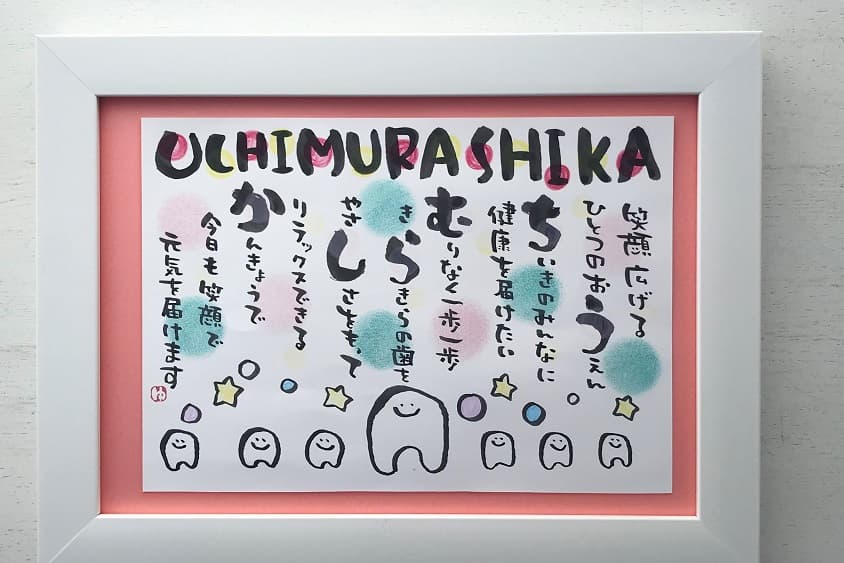 UCHIMURASHIKA
笑顔広げる
ひとつのおうえん
ちいきのみんなに
健康を届けたい
むりなく一歩一歩
きらきらの歯を
やさしさをもって
リラックスできる
かんきょうで
今日も笑顔で
元気を届けます